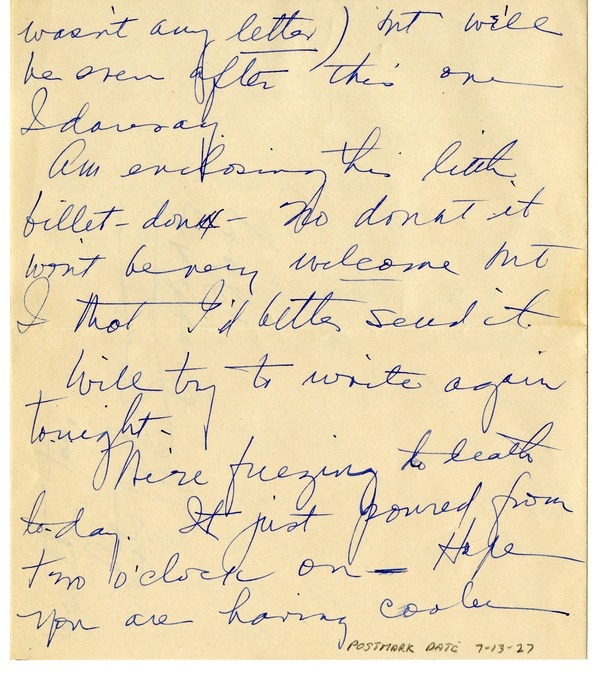 wasn't any letter) but we'll
be even after this one
I daresay.
Am enclosing this little
billet-doux - No doubt it
won't be very welcome but
I tho't I'd better send it.
Will try to write again
tonight -
We're freezing to death
to-day. It just poured from
two o'clock on - Hope
you are having cooler
POSTMARK DATE 7-13-27